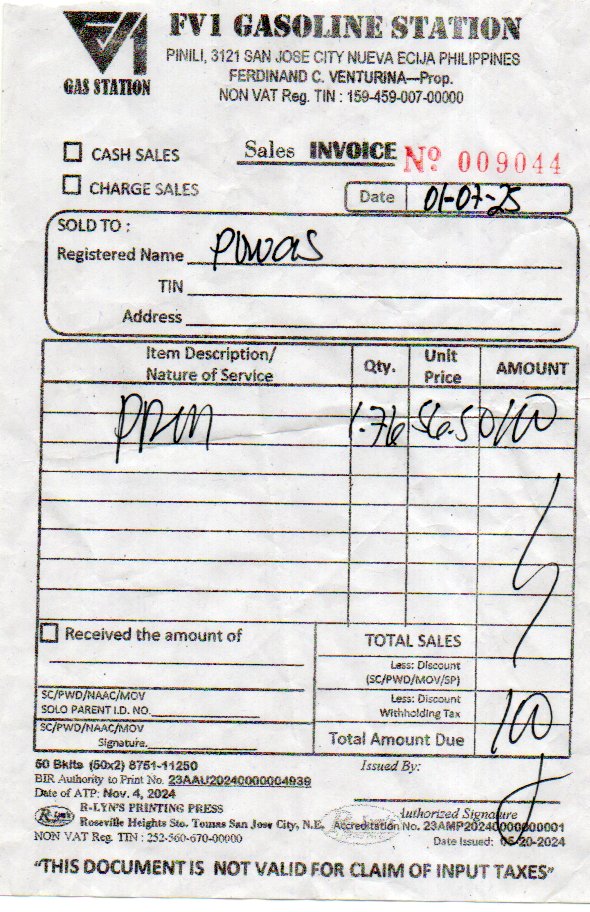 FV1 GASOLINE STATION
GAS STATION
PINILI, 3121 SAN JOSE CITY NUEVA ECIJA PHILIPPINES
FERDINAND C. VENTURINA—Prop.
NON VAT Reg. TIN : 159-459-007-00000
CASH SALES
Sales INVOICE Nº 009044
CHARGE SALES
Date 01-07-25
SOLD TO :
Registered Name
TIN
Address
Item Description/ Nature of Service Qty. Unit Price AMOUNT
1.76 56.50 100
Received the amount of
TOTAL SALES
Less: Discount
(SC/PWD/MOV/SP)
SC/PWD/NAAC/MOV
SOLO PARENT I.D. NO.
Less: Discount
Withholding Tax
SC/PWD/NAAC/MOV
Signature.
Total Amount Due 100
50 Bklts (50x2) 8751-11250
BIR Authority to Print No. 23AAU20240000004939
Date of ATP: Nov. 4, 2024
R-LYN'S PRINTING PRESS
Roseville Heights Sto. Tomas San Jose City, N.E.
NON VAT Reg. TIN : 252-560-670-00000
Issued By:
Authorized Signature
Accreditation No. 23AMP20240000000001
Date Issued: 05-20-2024
"THIS DOCUMENT IS NOT VALID FOR CLAIM OF INPUT TAXES"